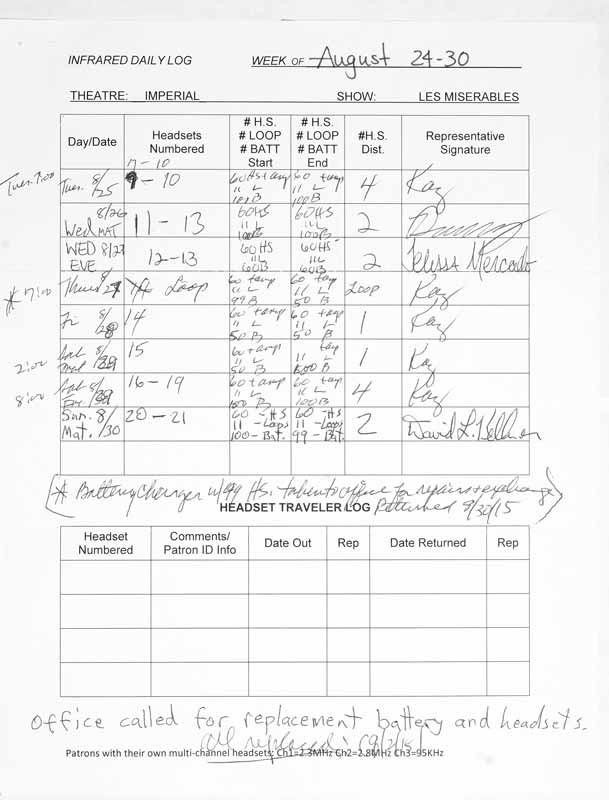 INFRARED DAILY LOG WEEK OF August 24-30
THEATRE: IMPERIAL SHOW: LES MISERABLES
Day/Date Headsets Numbered # H.S. # LOOP # BATT Start # H.S. # LOOP # BATT End #H.S. Dist. Representative Signature
7-10
Tues. 7:00 Tues. 8/25 9-10 60 Hs + amp 11 L 100B 60 + amp 11 L 100B 4 Kaz
Wed MAT 8/26 11-13 60HS 11 L 100B 60HS 11 L 100B 2
WED 8/27 EVE 12-13 60HS 11L 60B 60HS 11L 60B 2 Mercado
* 7:00 Thurs 8/27 Loop 60 + amp 11 L 99 B 60 + amp 11 L 50 B Loop Kaz
Fri 8/28 14 60 + amp 11 L 50 B 60 + amp 11 L 50 B 1 Kaz
2:00 Sat Mat 8/29 15 60 + amp 11 L 50 B 11 L 1 Kaz
8:00 Sat Eve. 8/29 16-19 60 + amp 11 L 100 B 60 + amp 11 L 100B 4 Kaz
Sun. 8/30 Mat. 20-21 60 -HS 11 -Loops 100-Bat. 60 -HS 11 -Loops 99 -Bat. 2 David L.
(* Battery Charger w/99 HS. taken to office for repairs + exchange)
HEADSET TRAVELER LOG Returned 8/30/15
Headset Numbered Comments/ Patron ID Info Date Out Rep Date Returned Rep
Office called for replacement battery and headsets.
All replaced! (9/2/15)
Patrons with their own multi-channel headsets: Ch1=2.3MHz Ch2=2.8MHz Ch3=95KHz